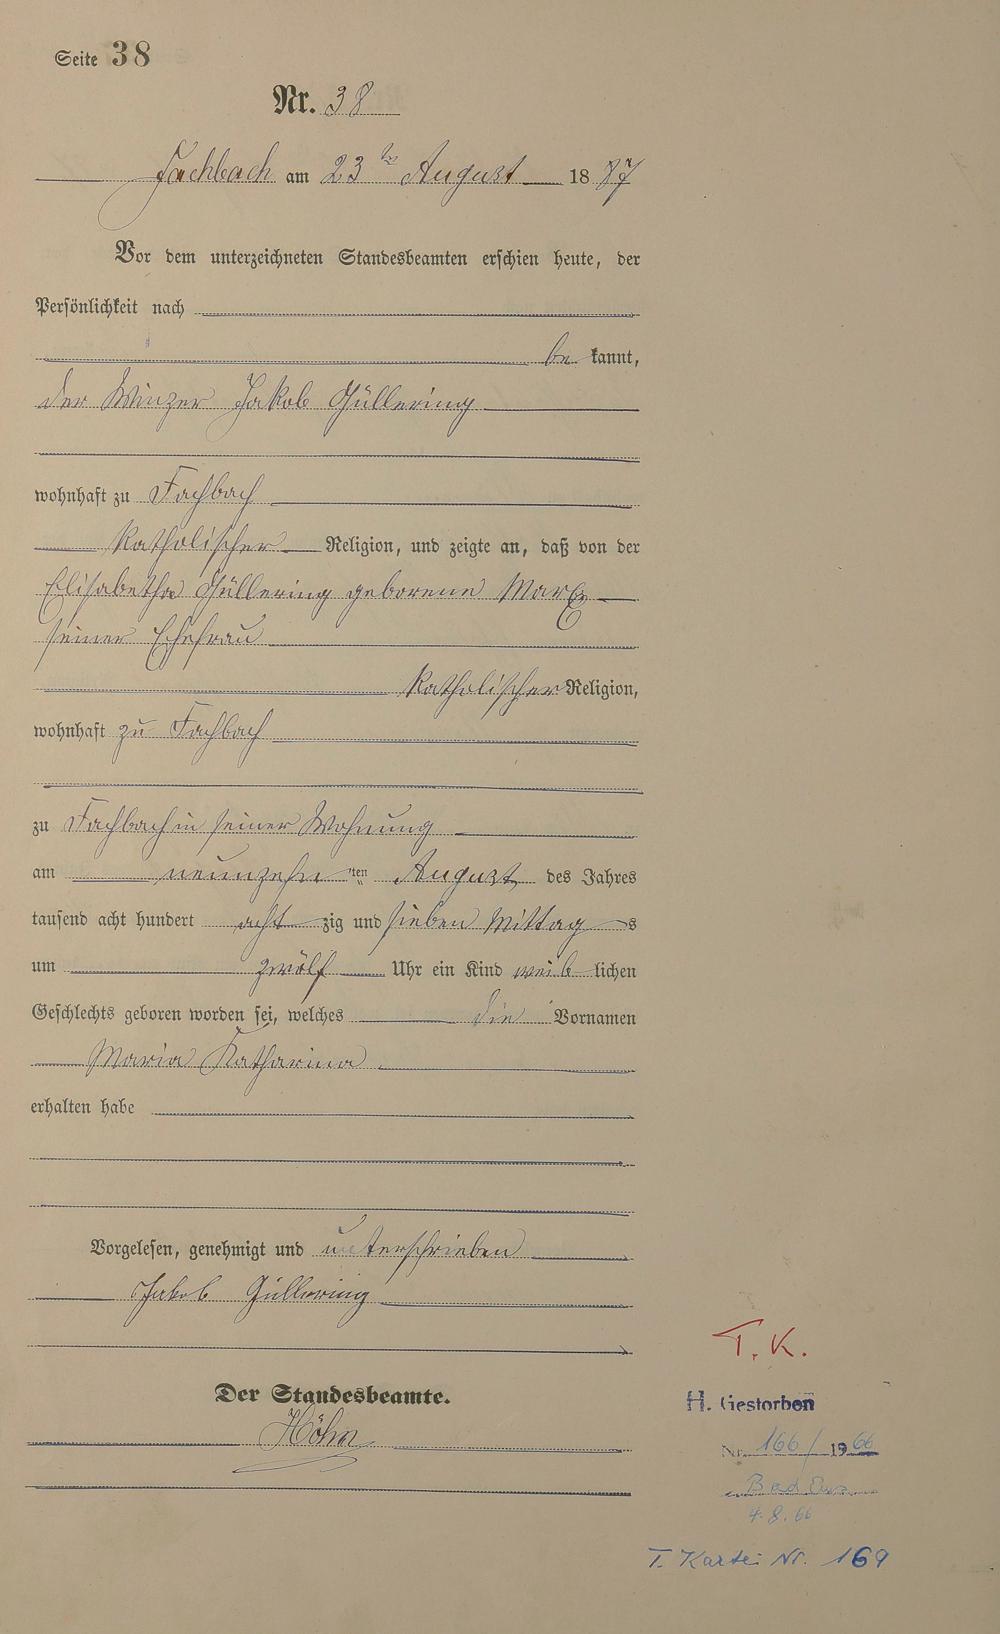 Seite 38
Nr. 38
Fachbach am 23ten August 1887
Vor dem unterzeichneten Standesbeamten erschien heute, der
Persönlichkeit nach
be kannt,
der Winzer Jakob Güllering
wohnhaft zu Fachbach
katholischer Religion, und zeigte an, daß von der
Elisabetha Güllering geborene Marx
seiner Ehefrau
katholischer Religion,
wohnhaft zu Fachbach
zu Fachbach in seiner Wohnung
am neunzehnten August des Jahres
tausend acht hundert achtzig und sieben Mittags
um zwölf Uhr ein Kind weiblichen
Geschlechts geboren worden sei, welches die Vornamen
Maria Katharina
erhalten habe
Vorgelesen, genehmigt und unterschrieben
Jakob Güllering
Der Standesbeamte.
Höhn
T. K.
H. Gestorben
Nr. 166/1966
Bad Ems
4.8.66
T. Kartei Nr. 169